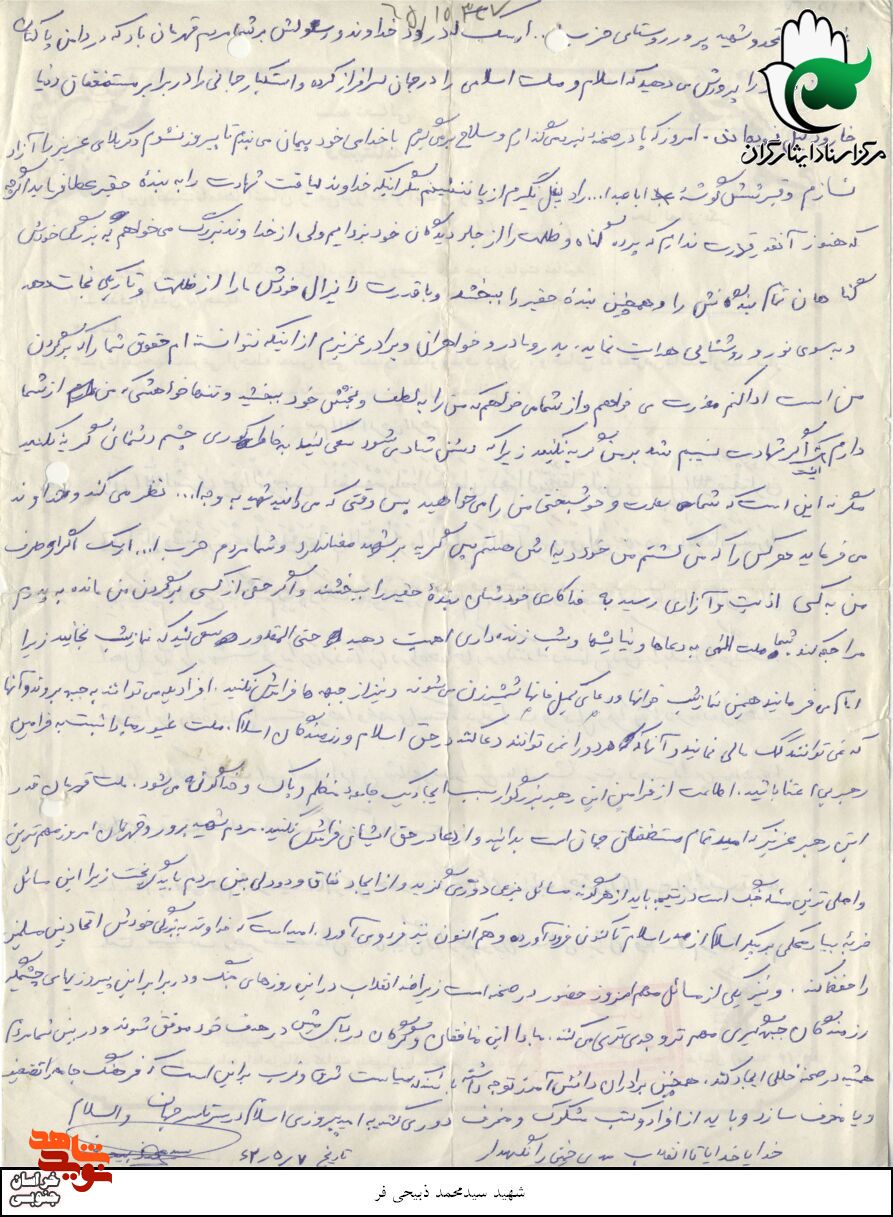 ۶۵,۱۰۳۴۷
شهید پرور روستای حزب ا... درود خداوند و رسولش بر شما مردم قهرمان باد که در دامن پاکتان
را پرورش می دهید که اسلام و ملت اسلامی را در جهان سرافراز کرده و استکبار جهانی را در برابر مستضعفان دنیا
خار و ذلیل. امروز که پا در صحنه نبرد می گذارم و سلاح بر می گیرم با خدای خود پیمان می بندم تا پیروز نشوم و کربلای عزیز را آزاد
نسازم و قبر شش گوشهٔ ابا عبدا... را در بغل نگیرم از پا ننشینم مگر اینکه خداوند لیاقت شهادت را به بندهٔ حقیر عطا فرماید اگرچه
که هنوز آنقدر قدرت ندارم که پرده گناه و ظلمت را از جلو دیدگان خود بزدایم ولی از خداوند بزرگ می خواهم که به بزرگی خودش
گناهان تمام بندگانش را و همچنین بندهٔ حقیر را ببخشد و با قدرت لایزال خودش ما را از ظلمت و تاریکی نجات دهد
و به سوی نور و روشنایی هدایت نماید. پدر و مادر و خواهرانی و برادر عزیزم از اینکه نتوانسته ام حقوق شما را که بر گردن
من است ادا کنم معذرت می خواهم و از شما می خواهم که من را به لطف و بخشش خود ببخشید و تنها خواهشی که من از شما
دارم این است اگر شهادت نصیبم شد بر من گریه نکنید زیرا که دشمن شاد می شود سعی کنید به خاطر کوری چشم دشمنان گریه نکنید
مگر نه این است که شما سعادت و خوشبختی من را می خواهید پس وقتی که می دانید شهید به وجه ا... نظر می کند و خداوند
می فرماید هر کس را که من کشتم من خود دیه اش هستم پس گریه بر شهید معنا ندارد و شما مردم حزب ا... اگر از طرف
من به کسی اذیت و آزاری رسید به فداکاری خودشان بندهٔ حقیر را ببخشند و اگر حقی از کسی بر گردن من مانده به پدرم
مراجعه کند شما ملت الهی به دعاها و نیایشها و شب زنده داری اهمیت دهید حتی المقدور سعی کنید که نماز شب بخوانید زیرا
امام می فرمایند همین نماز شب خوانها و دعای کمیل خوانها شمشیرزن می شوند و نیز از جبهه ها فراموش نکنید. افرادی که می توانند به جبهه بروند و آنها
که نمی توانند کمک مالی نمایند و آنها که هر دو را نمی توانند دعا کنند در حق اسلام و رزمندگان اسلام. ملت غیور مبادا نسبت به فرامین
رهبر بی اعتنا باشید. اطاعت از فرامین این رهبر بزرگوار سبب ایجاد یک جامعه منظم و پاک و خداگونه می شود. ملت قهرمان قدر
این رهبر عزیز که امید تمام مستضعفان جهان است بدانید و از دعا در حق ایشان فراموش نکنید. مردم شهید پرور و قهرمان امروز مهم ترین
و اصلی ترین مسئله جنگ است در نتیجه باید از هر گونه مسائل جزئی دوری گزید و از ایجاد نفاق و دودلی بین مردم باید گریخت زیرا این مسائل
ضربهٔ بسیار محکمی بر پیکر اسلام از صدر اسلام تا کنون فرود آورده و هم اکنون نیز فرود می آورد. امید است که خداوند به بزرگی خودش اتحاد بین مسلمین
را حفظ کند. و نیز یکی از مسائل مهم امروز حضور در صحنه است زیرا ضد انقلاب در این روزهای جنگ و در برابر این پیروزیهای چشمگیر
رزمندگان جبهه گیری مهم تر و جدی تری می کند. مبادا این منافقان و در هدف خود موفق شوند و در بین شما مردم
همیشه در صحنه خللی ایجاد کند. همچنین برادران دانش آموز توجه داشته باشند که سیاست شرق و غرب بر این است که فرهنگ جامعه را تضعیف
و یا منحرف سازد و باید از افراد و کتب مشکوک و منحرف دوری کنند به امید پیروزی اسلام در سرتاسر جهان والسلام
خدایا خدایا تا انقلاب مهدی خمینی را نگهدار
تاریخ ۶۲/۵/۷
مرکز اسناد ایثارگران
نوید شاهد
خراسان جنوبی
شهید سیدمحمد ذبیحی فر